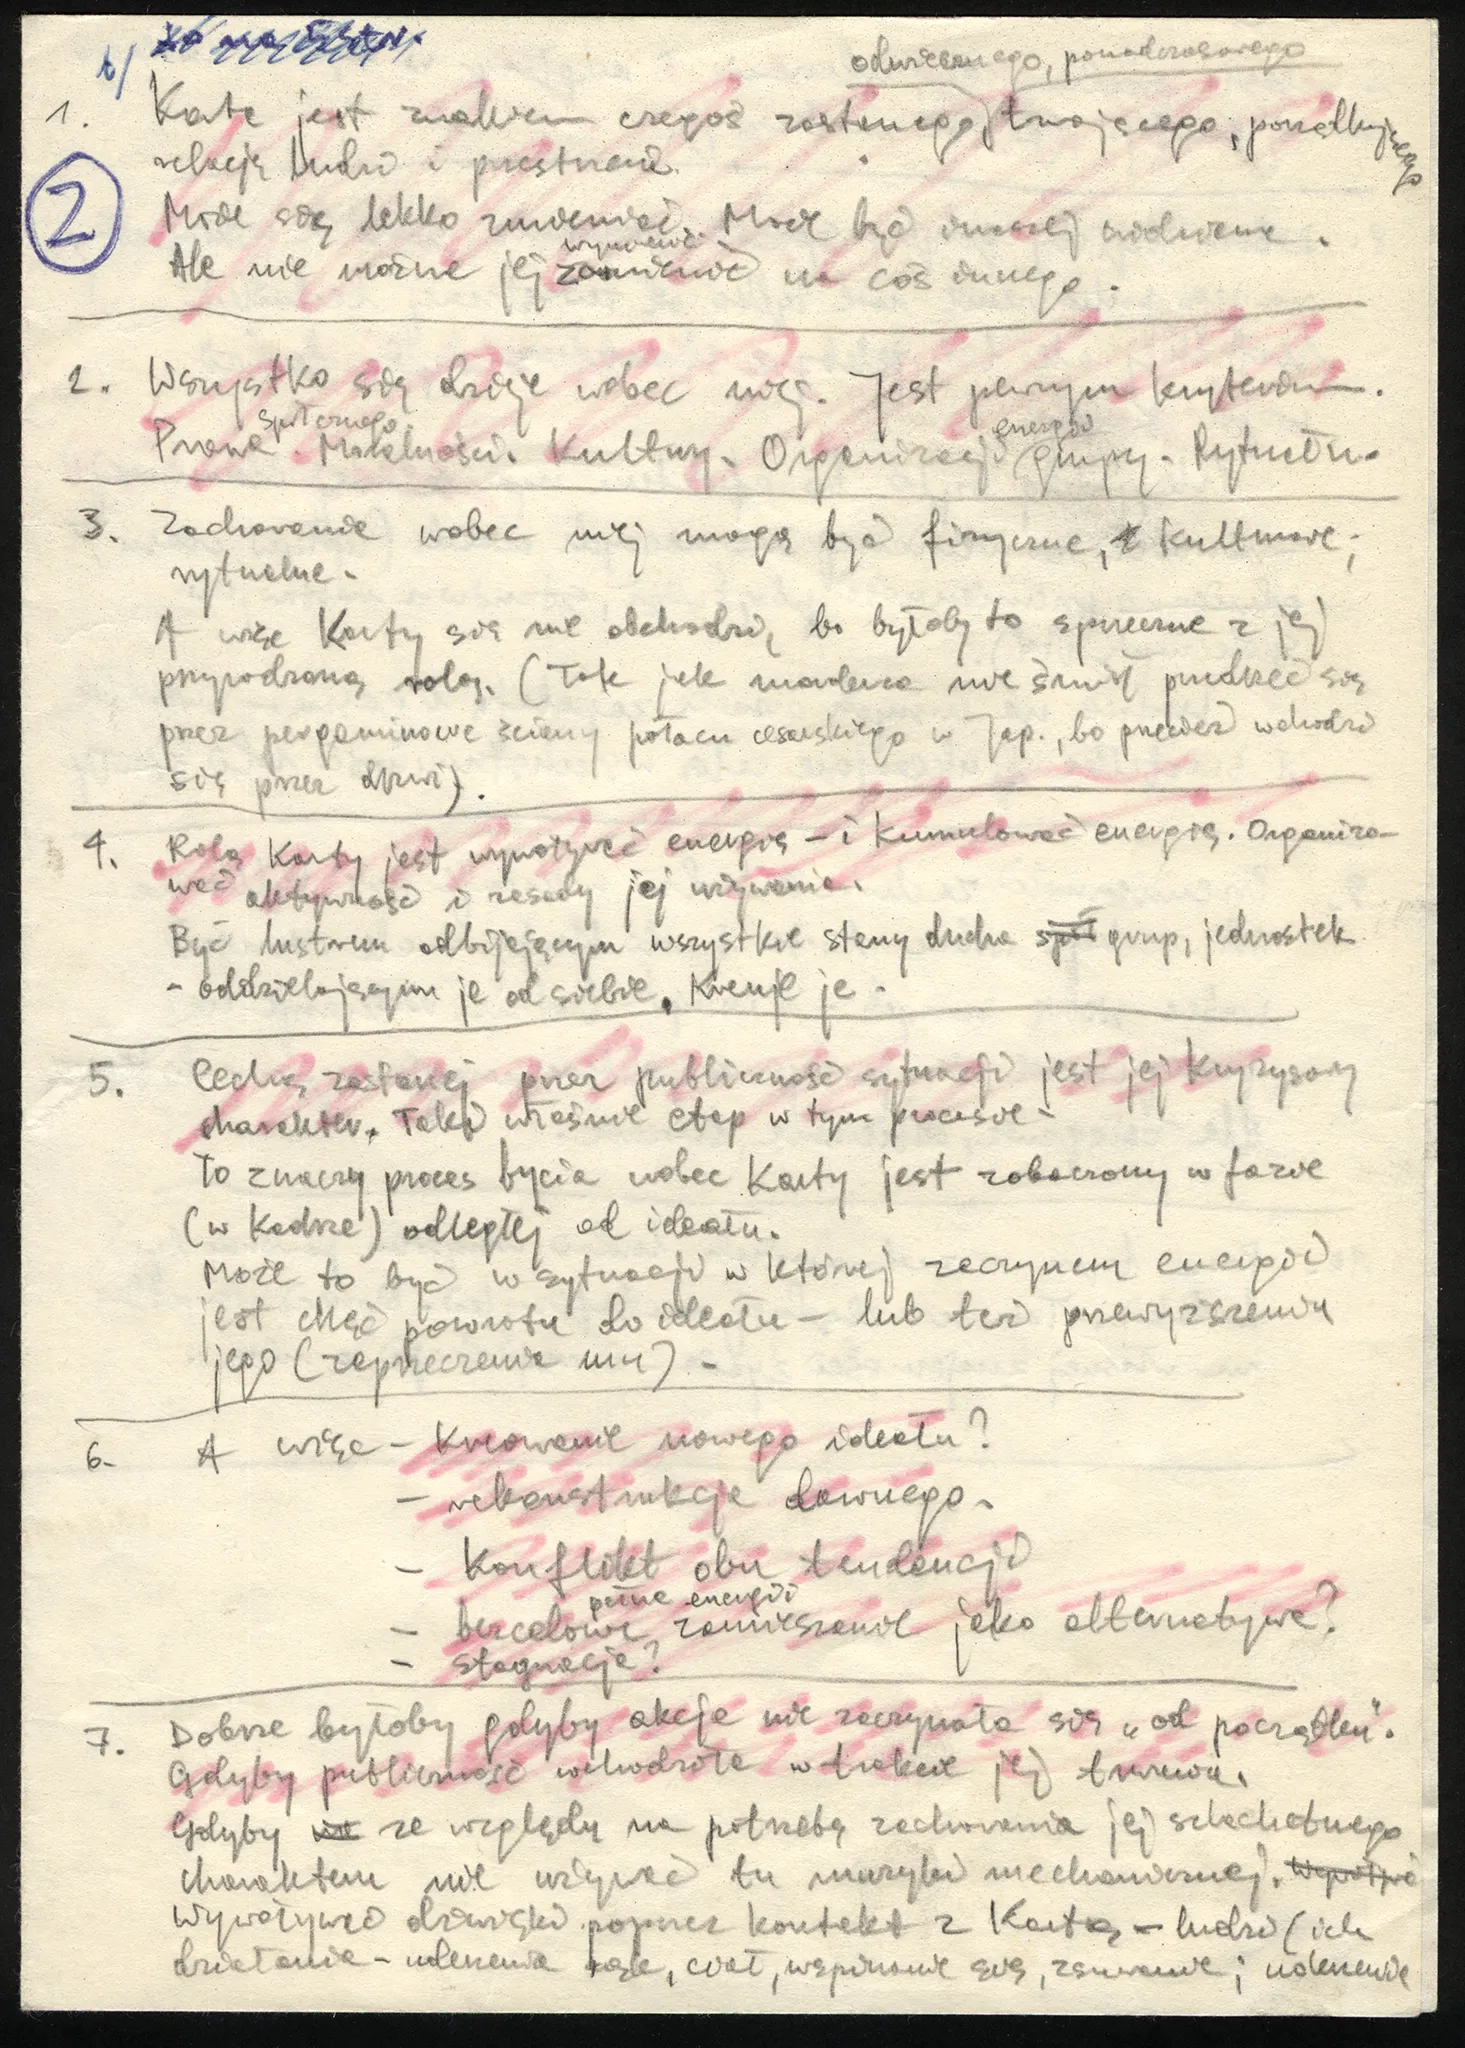 b/
odwiecznego, ponadczasowego
1. Karta jest znakiem czegoś zastanego, trwającego, porządkującego
relację ludzi i przestrzeni.
2
Może się lekko zmieniać. Może być inaczej widziana.
wymienić
Ale nie można jej zamienić na coś innego.
2. Wszystko się dzieje wobec niej. Jest pewnym kryterium.
społecznego energii
Prawa. Moralności. Kultury. Organizacji grupy. Rytuału.
3. Zachowanie wobec niej mogą być fizyczne, i kulturowe;
rytualne.
A więc Karty się nie obchodzi, bo byłoby to sprzeczne z jej
przyrodzoną rolą. (Tak jak morderca nie śmiał przedrzeć się
przez pergaminowe ściany pałacu cesarskiego w Jap., bo przecież wchodzi
się przez drzwi).
4. Rolą Karty jest wyzwalać energię – i kumulować energię. Organizo-
wać aktywność i zasady jej używania.
Być lustrem odbijającym wszystkie stany ducha społ grup, jednostek
– oddzielającym je od siebie. Kreuje je.
5. Cechą zastanej przez publiczność sytuacji jest jej kryzysowy
charakter. Taki właśnie etap w tym procesie –
To znaczy proces bycia wobec Karty jest zobaczony w fazie
(w kadrze) odległej od ideału.
Może to być w sytuacji w której zaczynem energii
jest chęć powrotu do ideału – lub też przewyższenia
jego (zaprzeczenia mu).
6. A więc – Kreowanie nowego ideału?
– rekonstrukcja dawnego.
– Konflikt obu tendencji
pełne energii
– bezcelowe zamieszanie jako alternatywa?
– stagnacja?
7. Dobrze byłoby gdyby akcja nie zaczynała się „od początku".
Gdyby publiczność wchodziła w trakcie jej trwania.
Gdyby nie ze względu na potrzebę zachowania jej szlachetnego
charakteru nie używać tu muzyki mechanicznej.
Wyzwalać dźwięki poprzez kontakt z Kartą – ludzi (ich
działania – uderzenia rąk, ciał, wspinanie się, zsuwanie; uderzenie